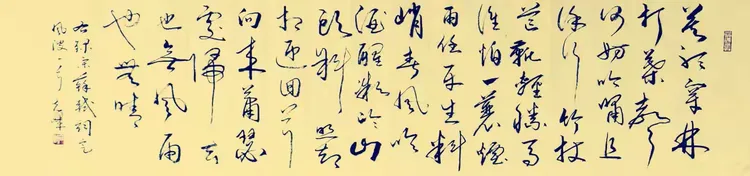 莫聽穿林
打葉聲
何妨吟嘯且
徐行竹杖
芒鞋輕勝馬
誰怕一蓑煙
雨任平生料
峭春風吹
酒醒微冷山
頭斜照却
相迎回首
向來蕭瑟
處歸去
也無風雨
也無晴
右録宋蘇軾詞定
風波一首